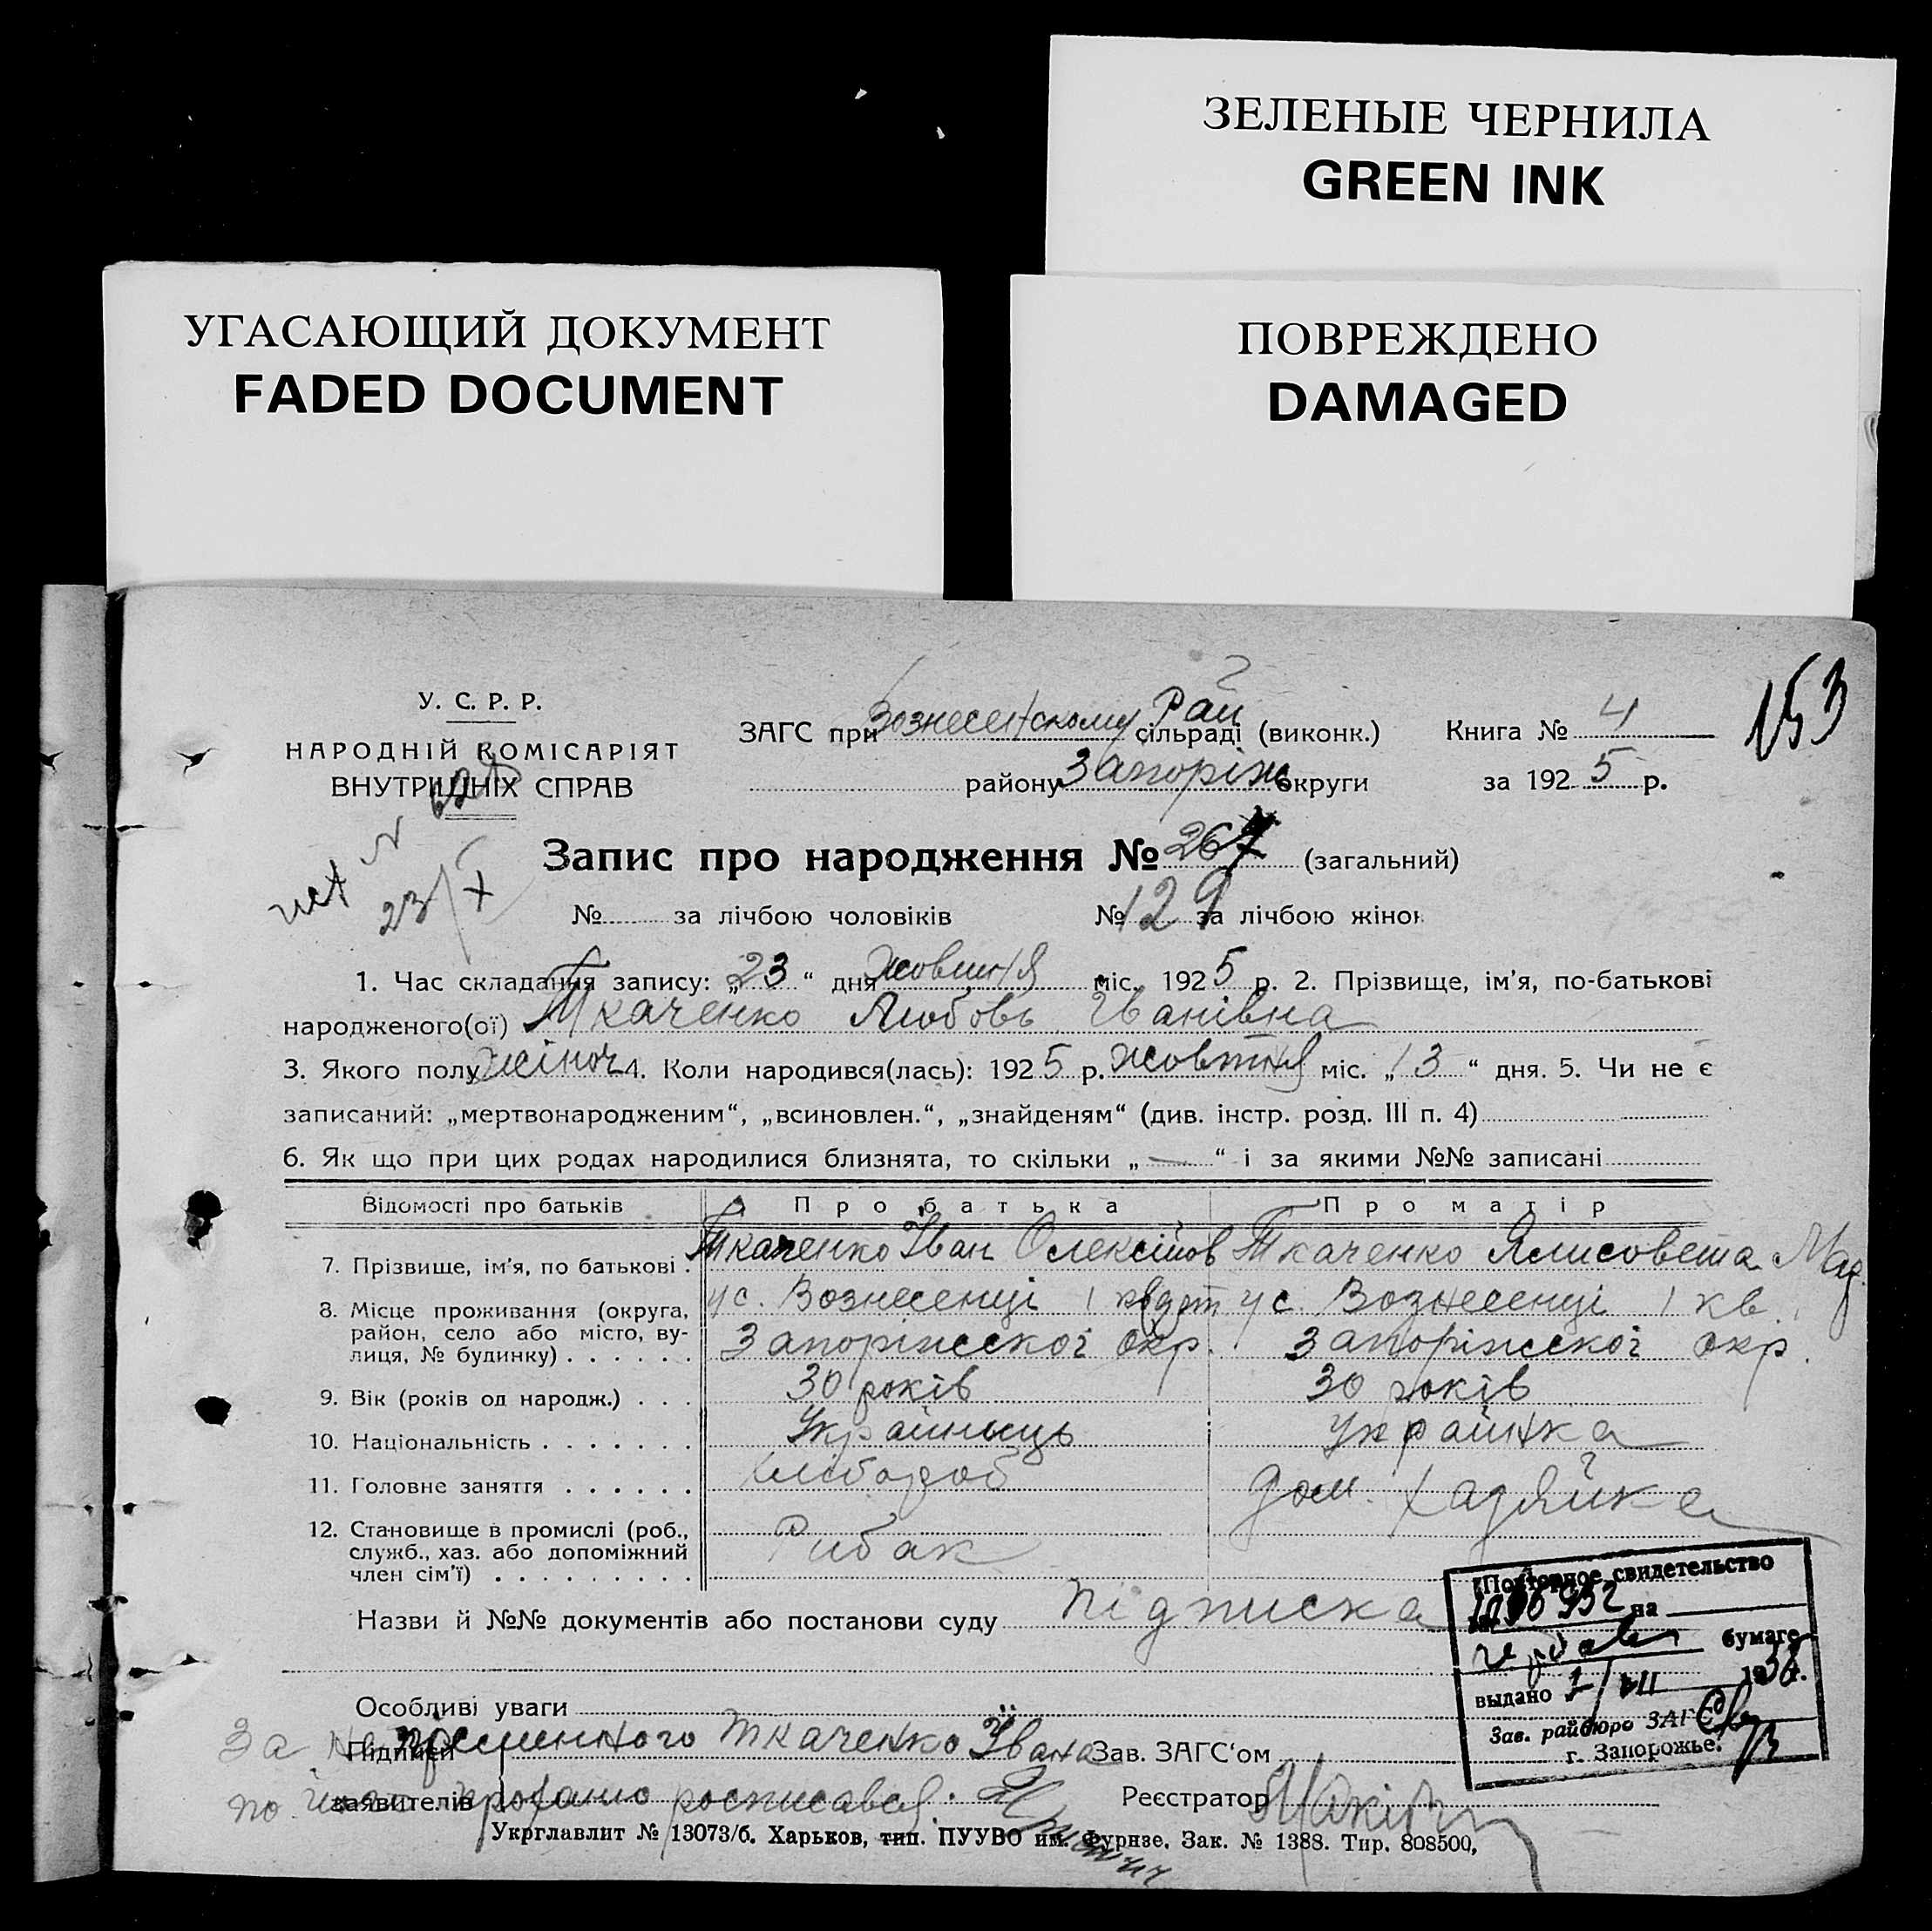 ЗЕЛЕНЫЕ ЧЕРНИЛА
GREEN INK
УГАСАЮЩИЙ ДОКУМЕНТ
FADED DOCUMENT
ПОВРЕЖДЕНО
DAMAGED
153
У. С. Р. Р.
НАРОДНІЙ КОМІСАРІЯТ
ВНУТРІШНІХ СПРАВ
ЗАГС при Вознесенскому Рай сільраді (виконк.)
району Запоріж округи
Книга № 4
за 1925 р.
23/X
Запис про народження № 267 (загальний)
№ за лічбою чоловіків № 129 за лічбою жінок
1. Час складання запису: „23“ дня жовтня міс. 1925 р. 2. Прізвище, ім’я, по-батькові
народженого(ої) Ткаченко Любовь Іванівна
3. Якого полу жіноч 4. Коли народився(лась): 1925 р. жовтня міс. „13“ дня. 5. Чи не є
записаний: „мертвонародженим“, „всиновлен.“, „знайденям“ (див. інстр. розд. III п. 4)
6. Як що при цих родах народилися близнята, то скільки „—“ і за якими №№ записані
Відомості про батьків Про батька Про матір
7. Прізвище, ім’я, по батькові . Ткаченко Іван Олексійов Ткаченко Ялисовета
8. Місце проживання (округа, у с. Вознесенці 1 у с. Вознесенці 1 кв.
район, село або місто, ву-
лиця, № будинку) . . . . . . Запоріжської окр. Запоріжської окр.
9. Вік (років од народж.) . . . 30 років 30 років
10. Національність . . . . . . . Українець Українка
11. Головне заняття . . . . . . Хлібороб дом. хадяйка
12. Становище в промислі (роб.,
служб., хаз. або допоміжний Рибак
член сім’ї) . . . . . . . . .
Назви й №№ документів або постанови суду підписка
Повторное свидетельство
на
бумаге
выдано 1/VII 193
Зав. райбюро ЗАГС
г. Запорожье.
Особливі уваги
За Ткаченко Івана
Підписи
Зав. ЗАГС‘ом
по його росписався.
заявителів
Реєстратор
Укрглавлит № 13073/б. Харьков, тип. ПУУВО им. Фурнзе. Зак. № 1388. Тир. 808500,